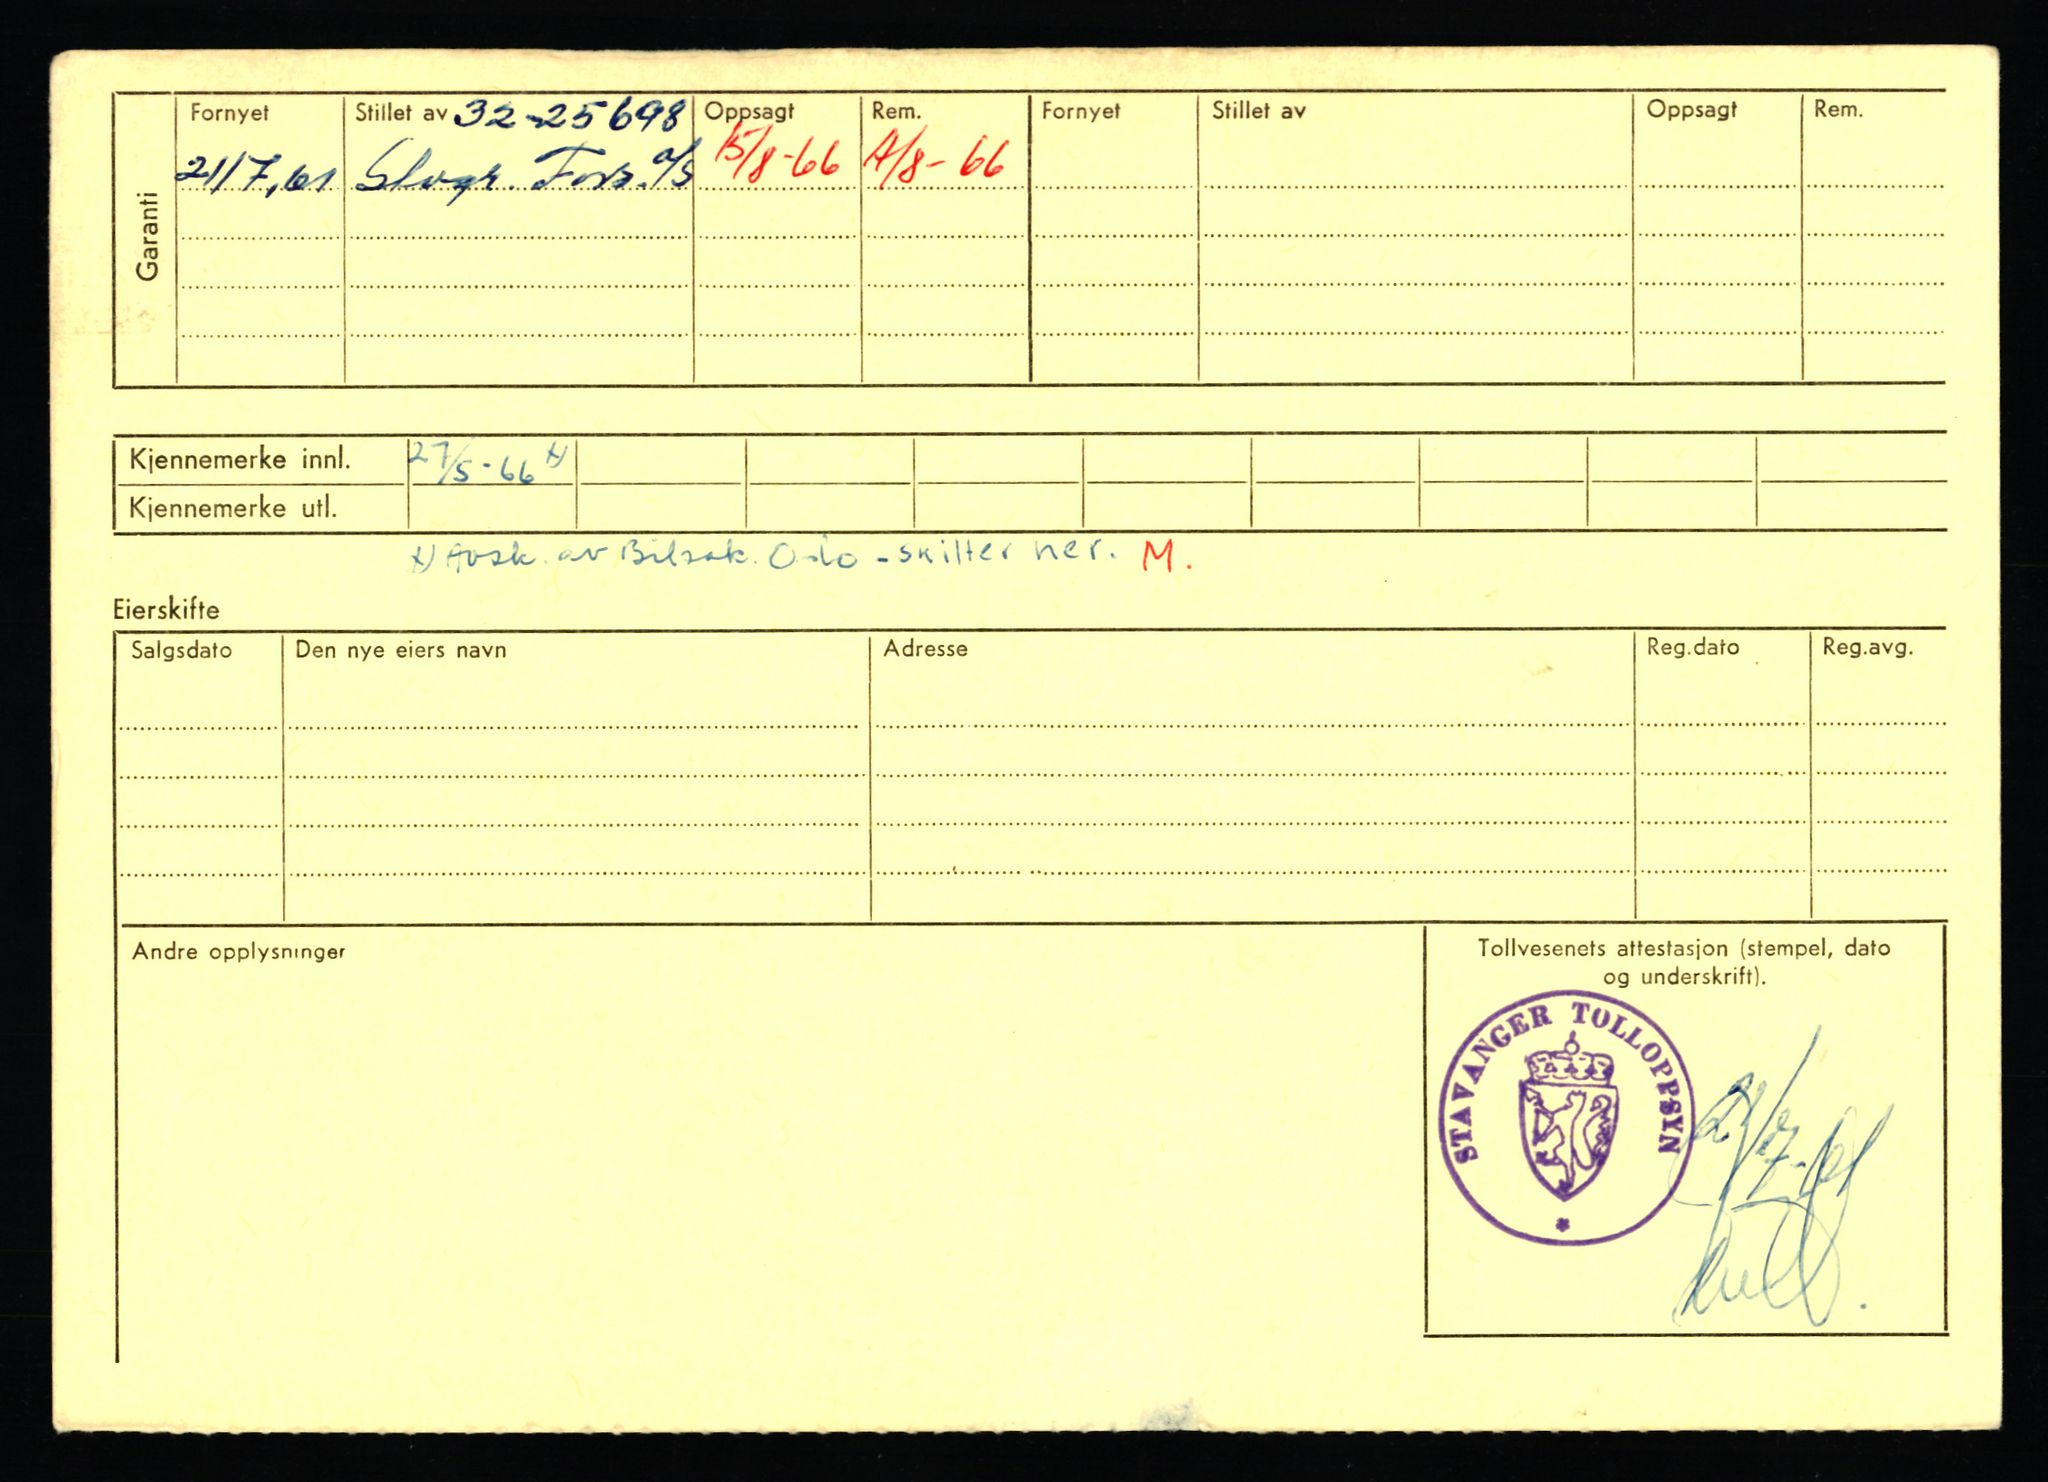 Garanti
Fornyet Stillet av 32-25698 Oppsagt Rem. Fornyet Stillet av Oppsagt Rem.
21/7,61 Stvgr. Fors. A/S 15/8-66 A/8-66
Kjennemerke innl. 27/5-66 x)
Kjennemerke utl.
x) Avsk. av Bilsak. Oslo - skilter her. M.
Eierskifte
Salgsdato Den nye eiers navn Adresse Reg.dato Reg.avg.
Andre opplysninger
Tollvesenets attestasjon (stempel, dato
og underskrift).
STAVANGER TOLLOPPSYN
21/7-61